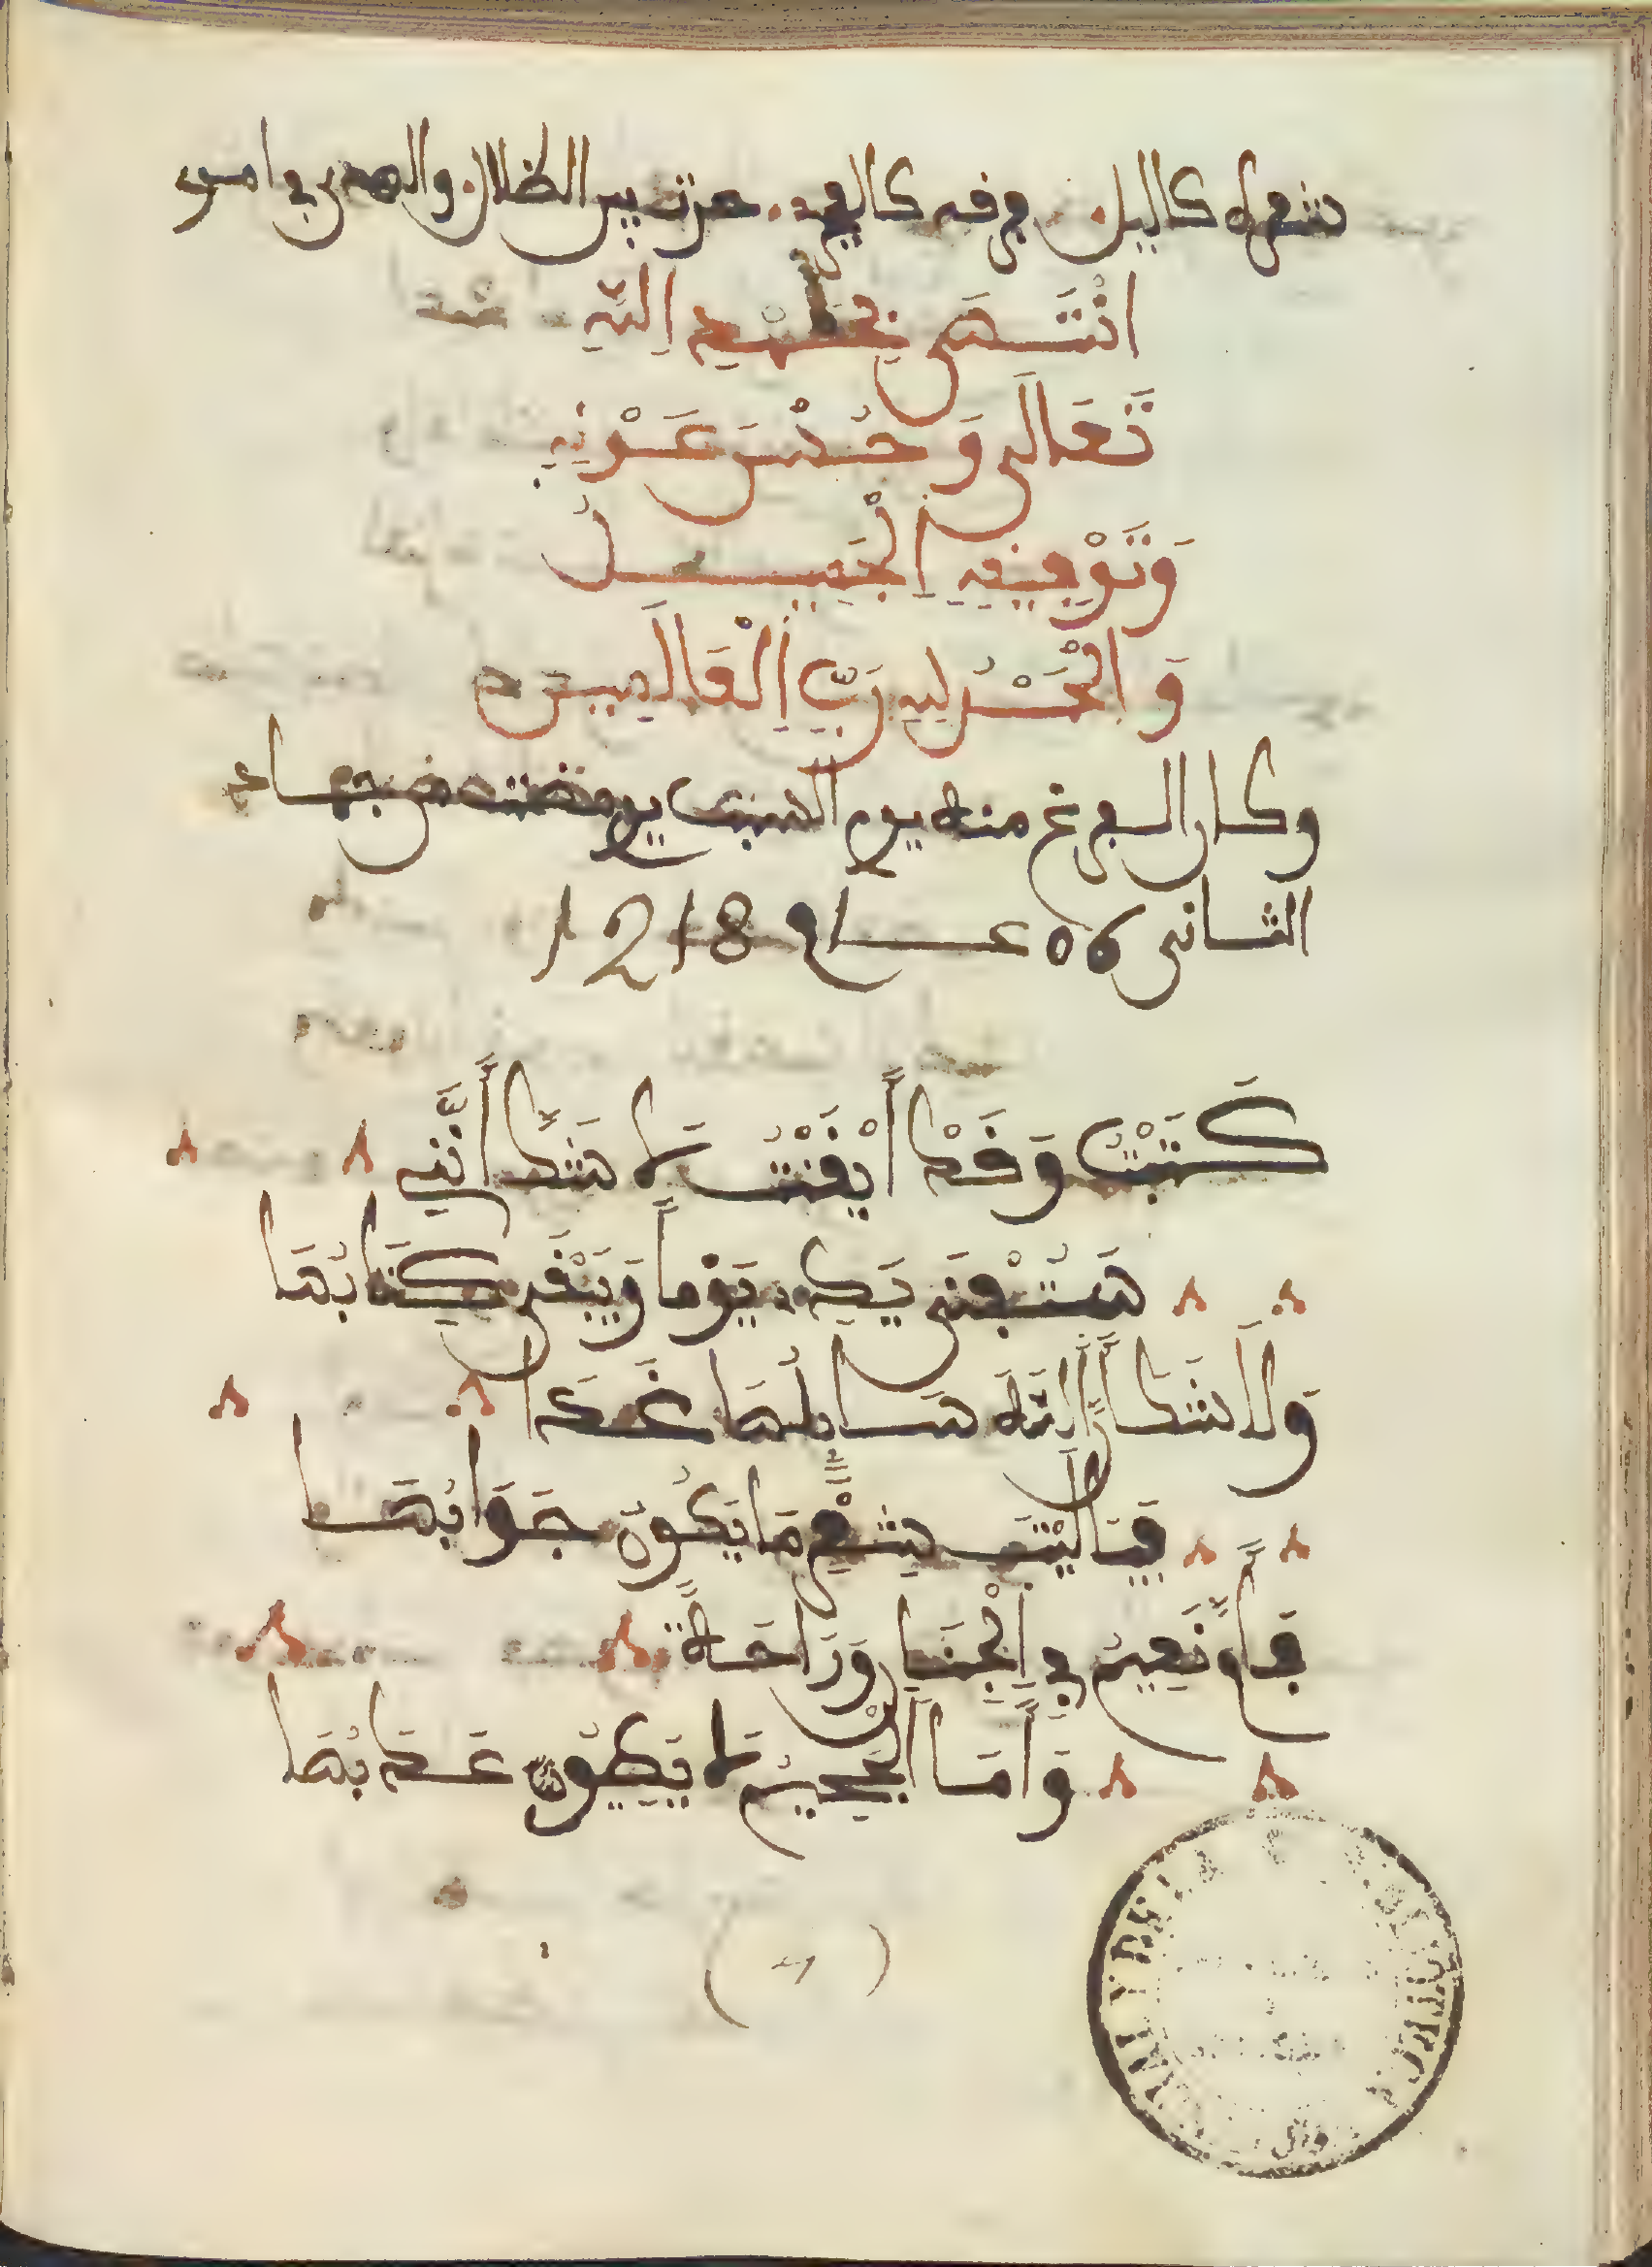 شعره كاليل فرفه كالفجر حرت بين الظلال والهدى في امور
انْتَهَى بِحَمْدِ اللَّهِ
تَعَالَى وَحُسْنِ عَوْنِهِ
وَتَوْفِيقِهِ الْجَمِيلُ
وَالْحَمْدُ لِلهِ رَبِّ الْعَالَمِينَ
وكان الفرغ منه يوم السبت يوم من جماد
الثاني 06 عام 1218
كَتَبْتُ وَقَدْ أَيْقَنْتُ لَا شَكَّ أَنَّنِي
سَتَفْنَى يَدِي يَوْماً وَيَبْقَى كِتَابُهَا
وَلَا شَكَّ أَنَّ اللَّهَ سَائِلُهَا غَداً
فَيَالَيْتَ شِعْرِي مَا يَكُونُ جَوَابُهَا
فَإِمَّا نَعِيمٌ فِي الْجِنَانِ وَرَاحَةٌ
وَأَمَّا الْجَحِيمُ لَا يَكُونُ عَذَابُهَا